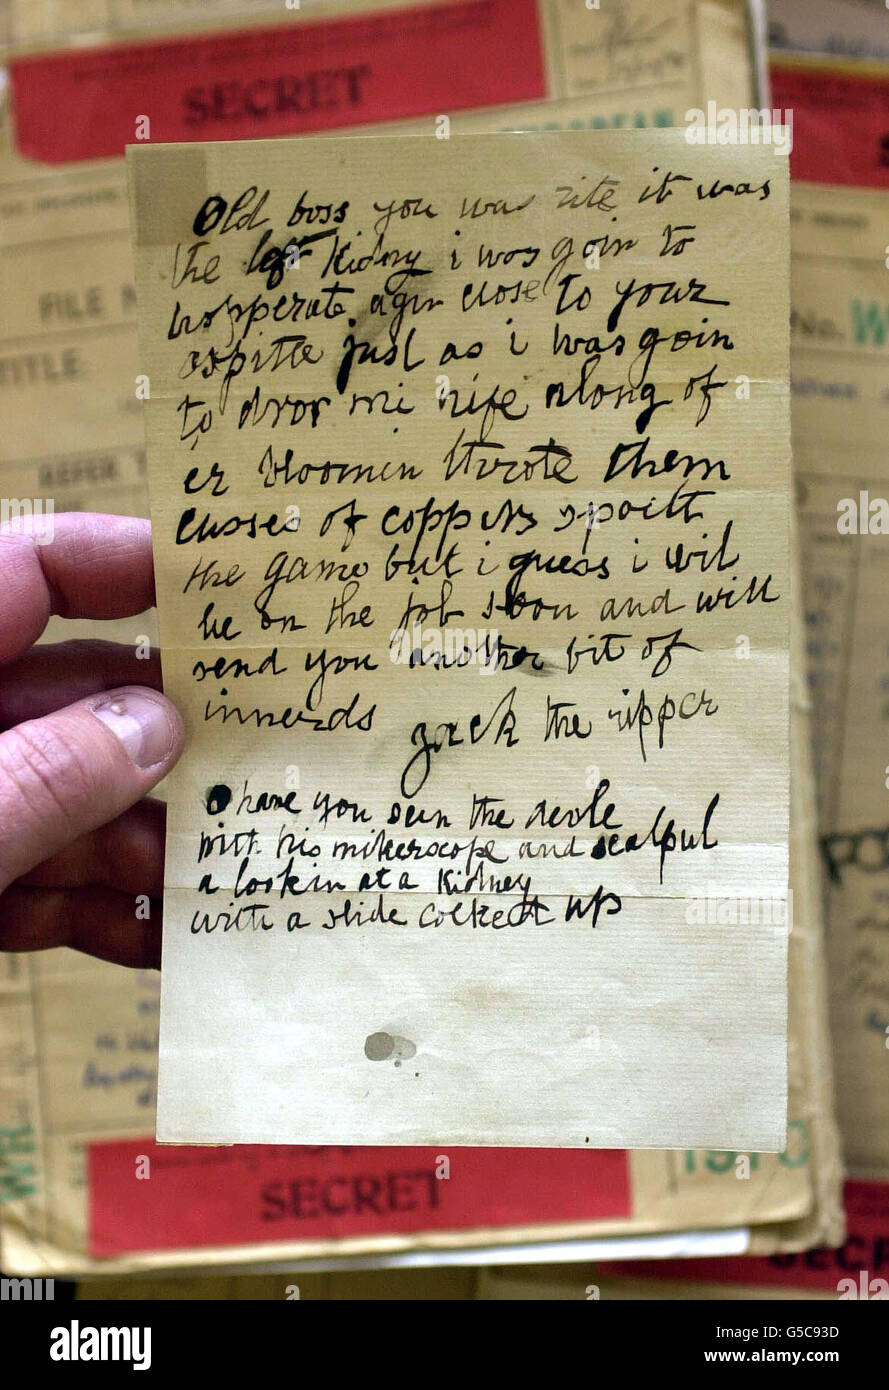 SECRET
FILE N
TITLE
REFER T
No. W
Old boss you was rite it was
the left kidny i was goin to
hopperate agin close to your
ospitle just as i was goin
to dror mi nife along of
er bloomin throte them
cusses of coppers spoilt
the game but i guess i wil
be on the job soon and will
send you another bit of
innerds
Jack the ripper
O have you seen the devle
with his mikerscope and scalpul
a lookin at a Kidney
with a slide cocked up
SECRET
alamy
Image ID: G5C93D
www.alamy.com